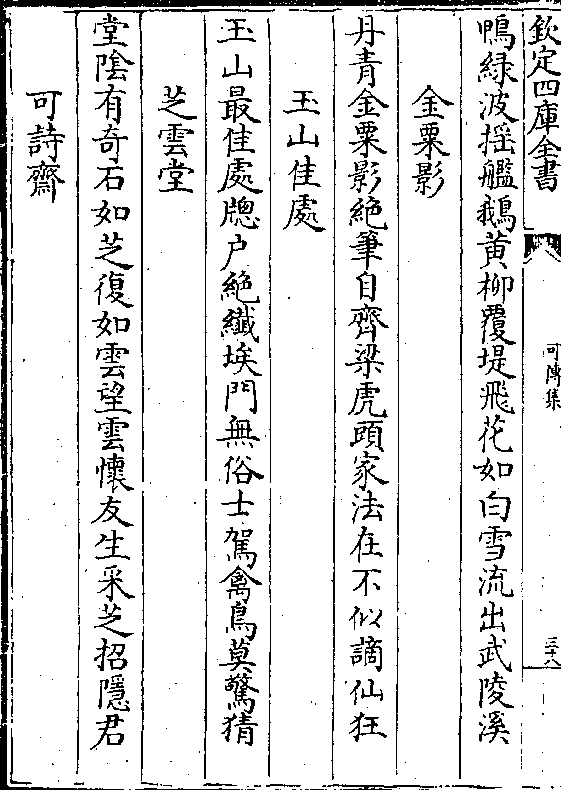 欽定四庫全書
可傳集
三十八
鴨綠波揺艦鵝黄柳覆堤飛花如白雪流出武陵溪
金粟影
丹青金粟影絶筆自齊梁虎頭家法在不似謫仙狂
玉山佳處
玉山最佳處牕户絶纖埃門無俗士駕禽鳥莫驚猜
芝雲堂
堂陰有奇石如芝復如雲望雲懷友生采芝招隱君
可詩齋